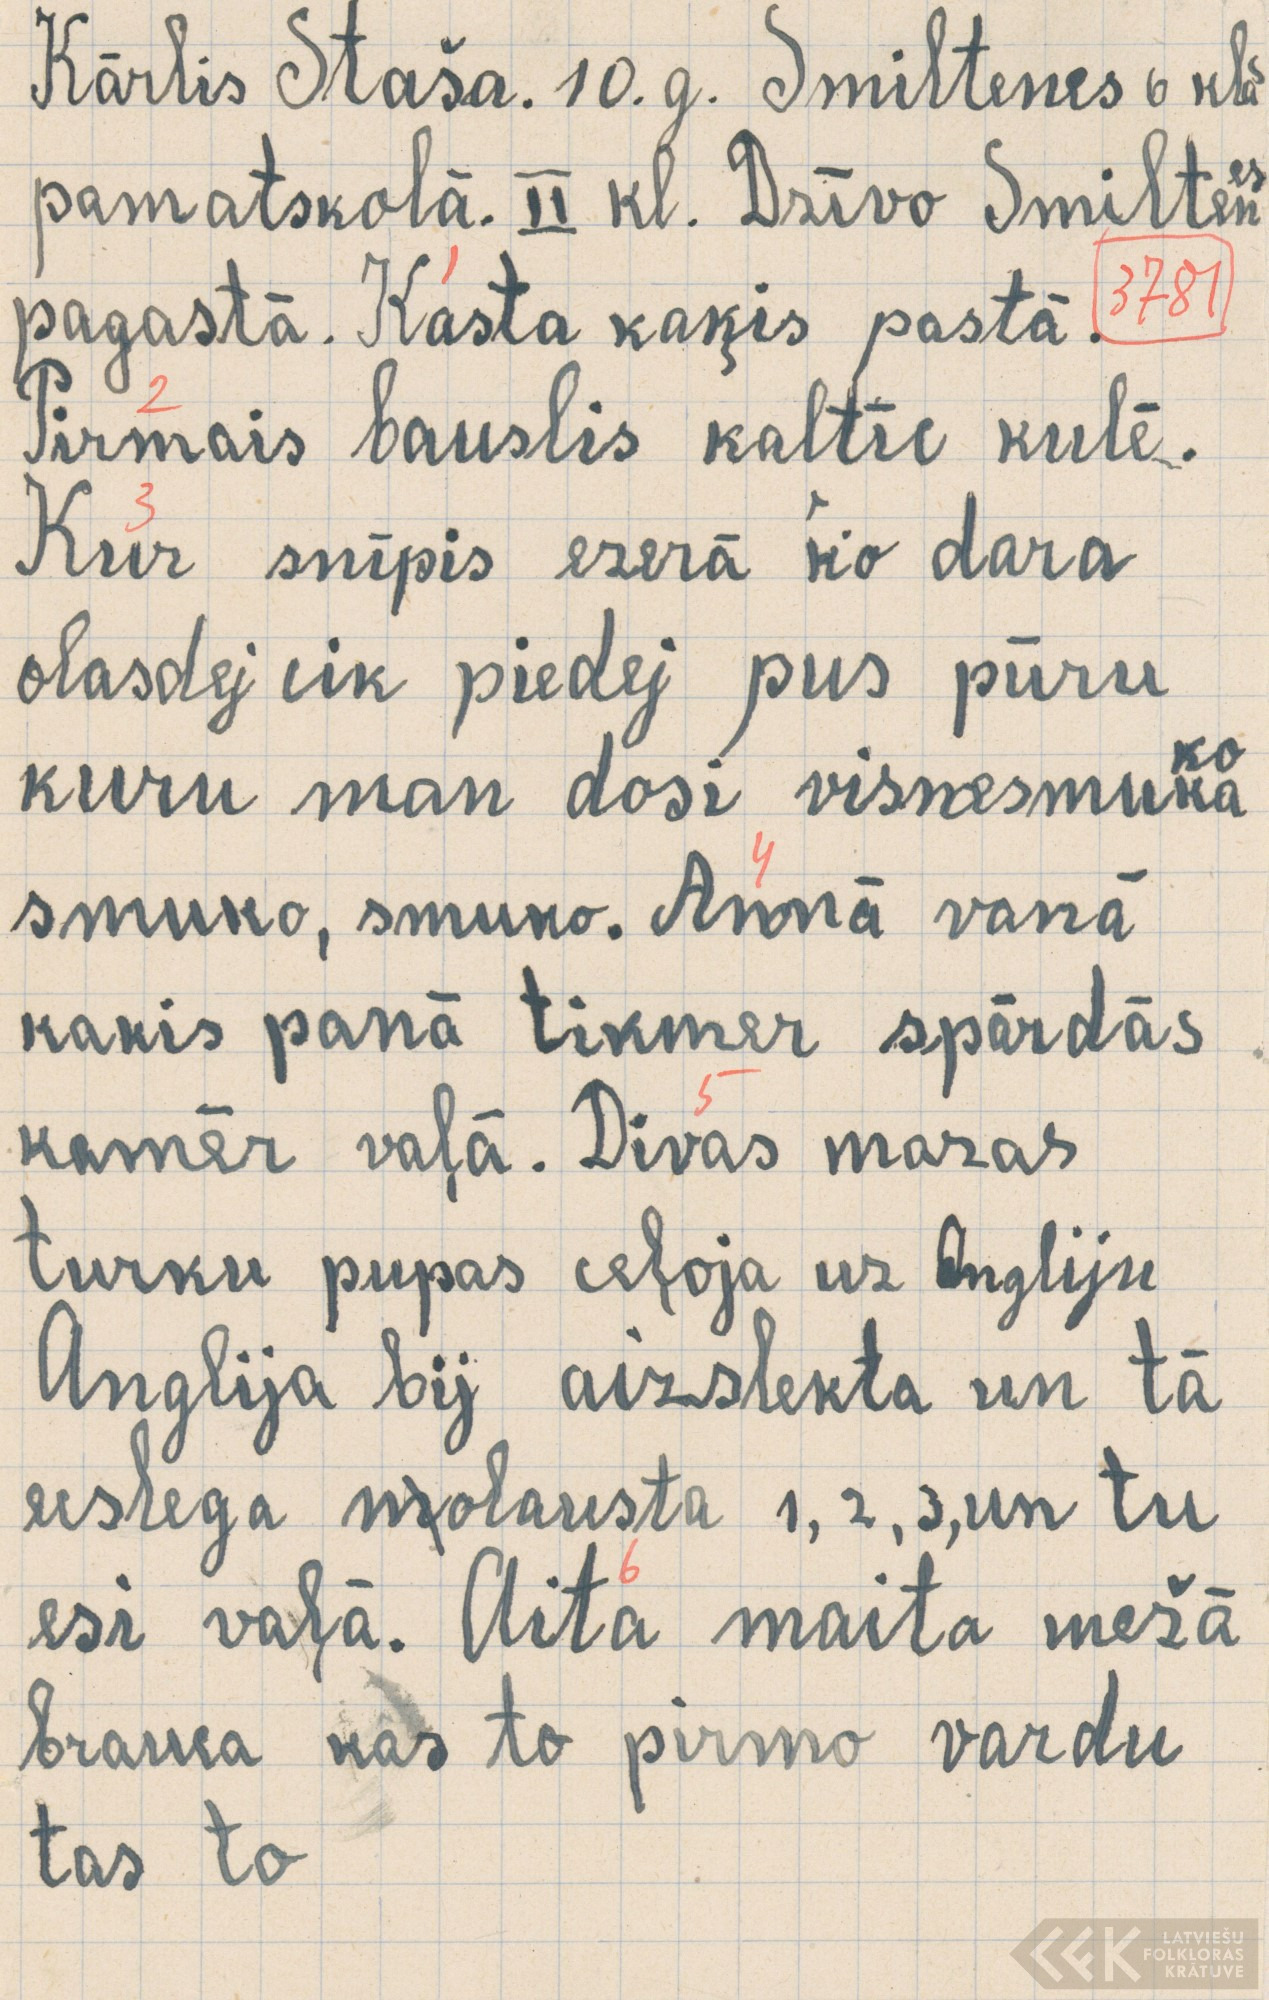 Kārlis Staša. 10. g. Smiltenes 6 klas
pamatskolā. II kl. Dzīvo Smiltenes
pagastā. Kasta kaķis pastā. 3781
1
2
Pirmais bauslis kaltīc kulē.
3
Kur snīpis ezerā ko dara
olasdej cik piedej pus pūru
kuru man dosi visnesmuko
ka
4
smuko, smuko. Annā vanā
kakis panā tikmer spārdās
5
kamēr vaļā. Divas mazas
turku pupas ceļoja uz Angliju
Anglija bij aizslekta un tā
eslega molausta 1, 2, 3, un tu
6
esi vaļā. Aita maita mežā
brauca kas to pirmo vardu
tas to
LATVIEŠU
FOLKLORAS
KRĀTUVE